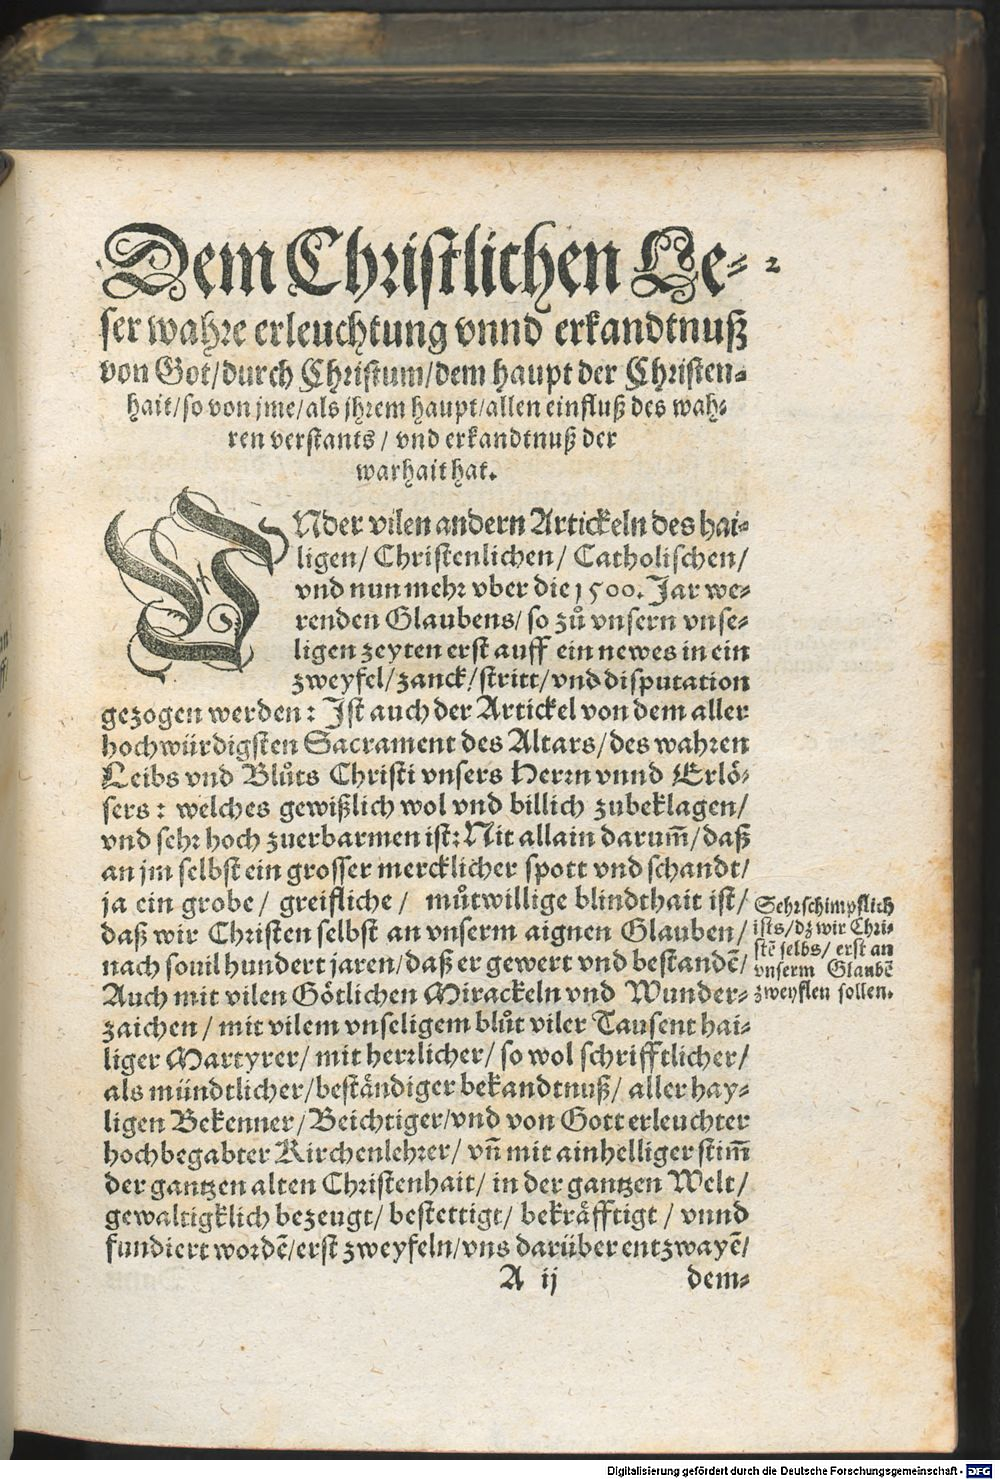 Dem Christlichen Le⸗ 2
ser wahre erleuchtung vnnd erkandtnuß
von Got/durch Christum/dem haupt der Christen⸗
hait/so von jme/als jhrem haupt/allen einfluß des wah⸗
ren verstants/ vnd erkandtnuß der
warhait hat.
VNder vilen andern Artickeln des hai⸗
ligen/ Christenlichen/ Catholischen/
vnd nun mehr vber die 1500. Jar we⸗
renden Glaubens/ so zů vnsern vnse⸗
ligen zeyten erst auff ein newes in ein
zweyfel/zanck/stritt/vnd disputation
gezogen werden: Jst auch der Artickel von dem aller
hochwürdigsten Sacrament des Altars/des wahren
Leibs vnd Blůts Christi vnsers Herrn vnnd Erlö⸗
sers: welches gewißlich wol vnd billich zubeklagen/
vnd sehr hoch zuerbarmen ist: Nit allain darum̃/daß
an jm selbst ein grosser mercklicher spott vnd schandt/
ja ein grobe/ greifliche/ můtwillige blindthait ist/
daß wir Christen selbst an vnserm aignen Glauben/
nach souil hundert jaren/daß er gewert vnd bestandẽ/
Auch mit vilen Götlichen Mirackeln vnd Wunder⸗
zaichen/ mit vilem vnseligem blůt viler Tausent hai⸗
liger Martyrer/ mit herrlicher/ so wol schrifftlicher/
als mündtlicher/beständiger bekandtnuß/ aller hay⸗
ligen Bekenner/Beichtiger/vnd von Gott erleuchter
hochbegabter Kirchenlehrer/ vñ mit ainhelliger stim̃
der gantzen alten Christenhait/ in der gantzen Welt/
gewaltigklich bezeugt/ bestettigt/ bekräfftigt/ vnnd
fundiert wordẽ/erst zweyfeln/vns darüber entzwayẽ/
A ij dem⸗
Sehr schimpflich
ists/dz wir Chri⸗
stẽ selbs/ erst an
vnserm Glaubẽ
zweyflen sollen.
Digitalisierung gefördert durch die Deutsche Forschungsgemeinschaft - DFG